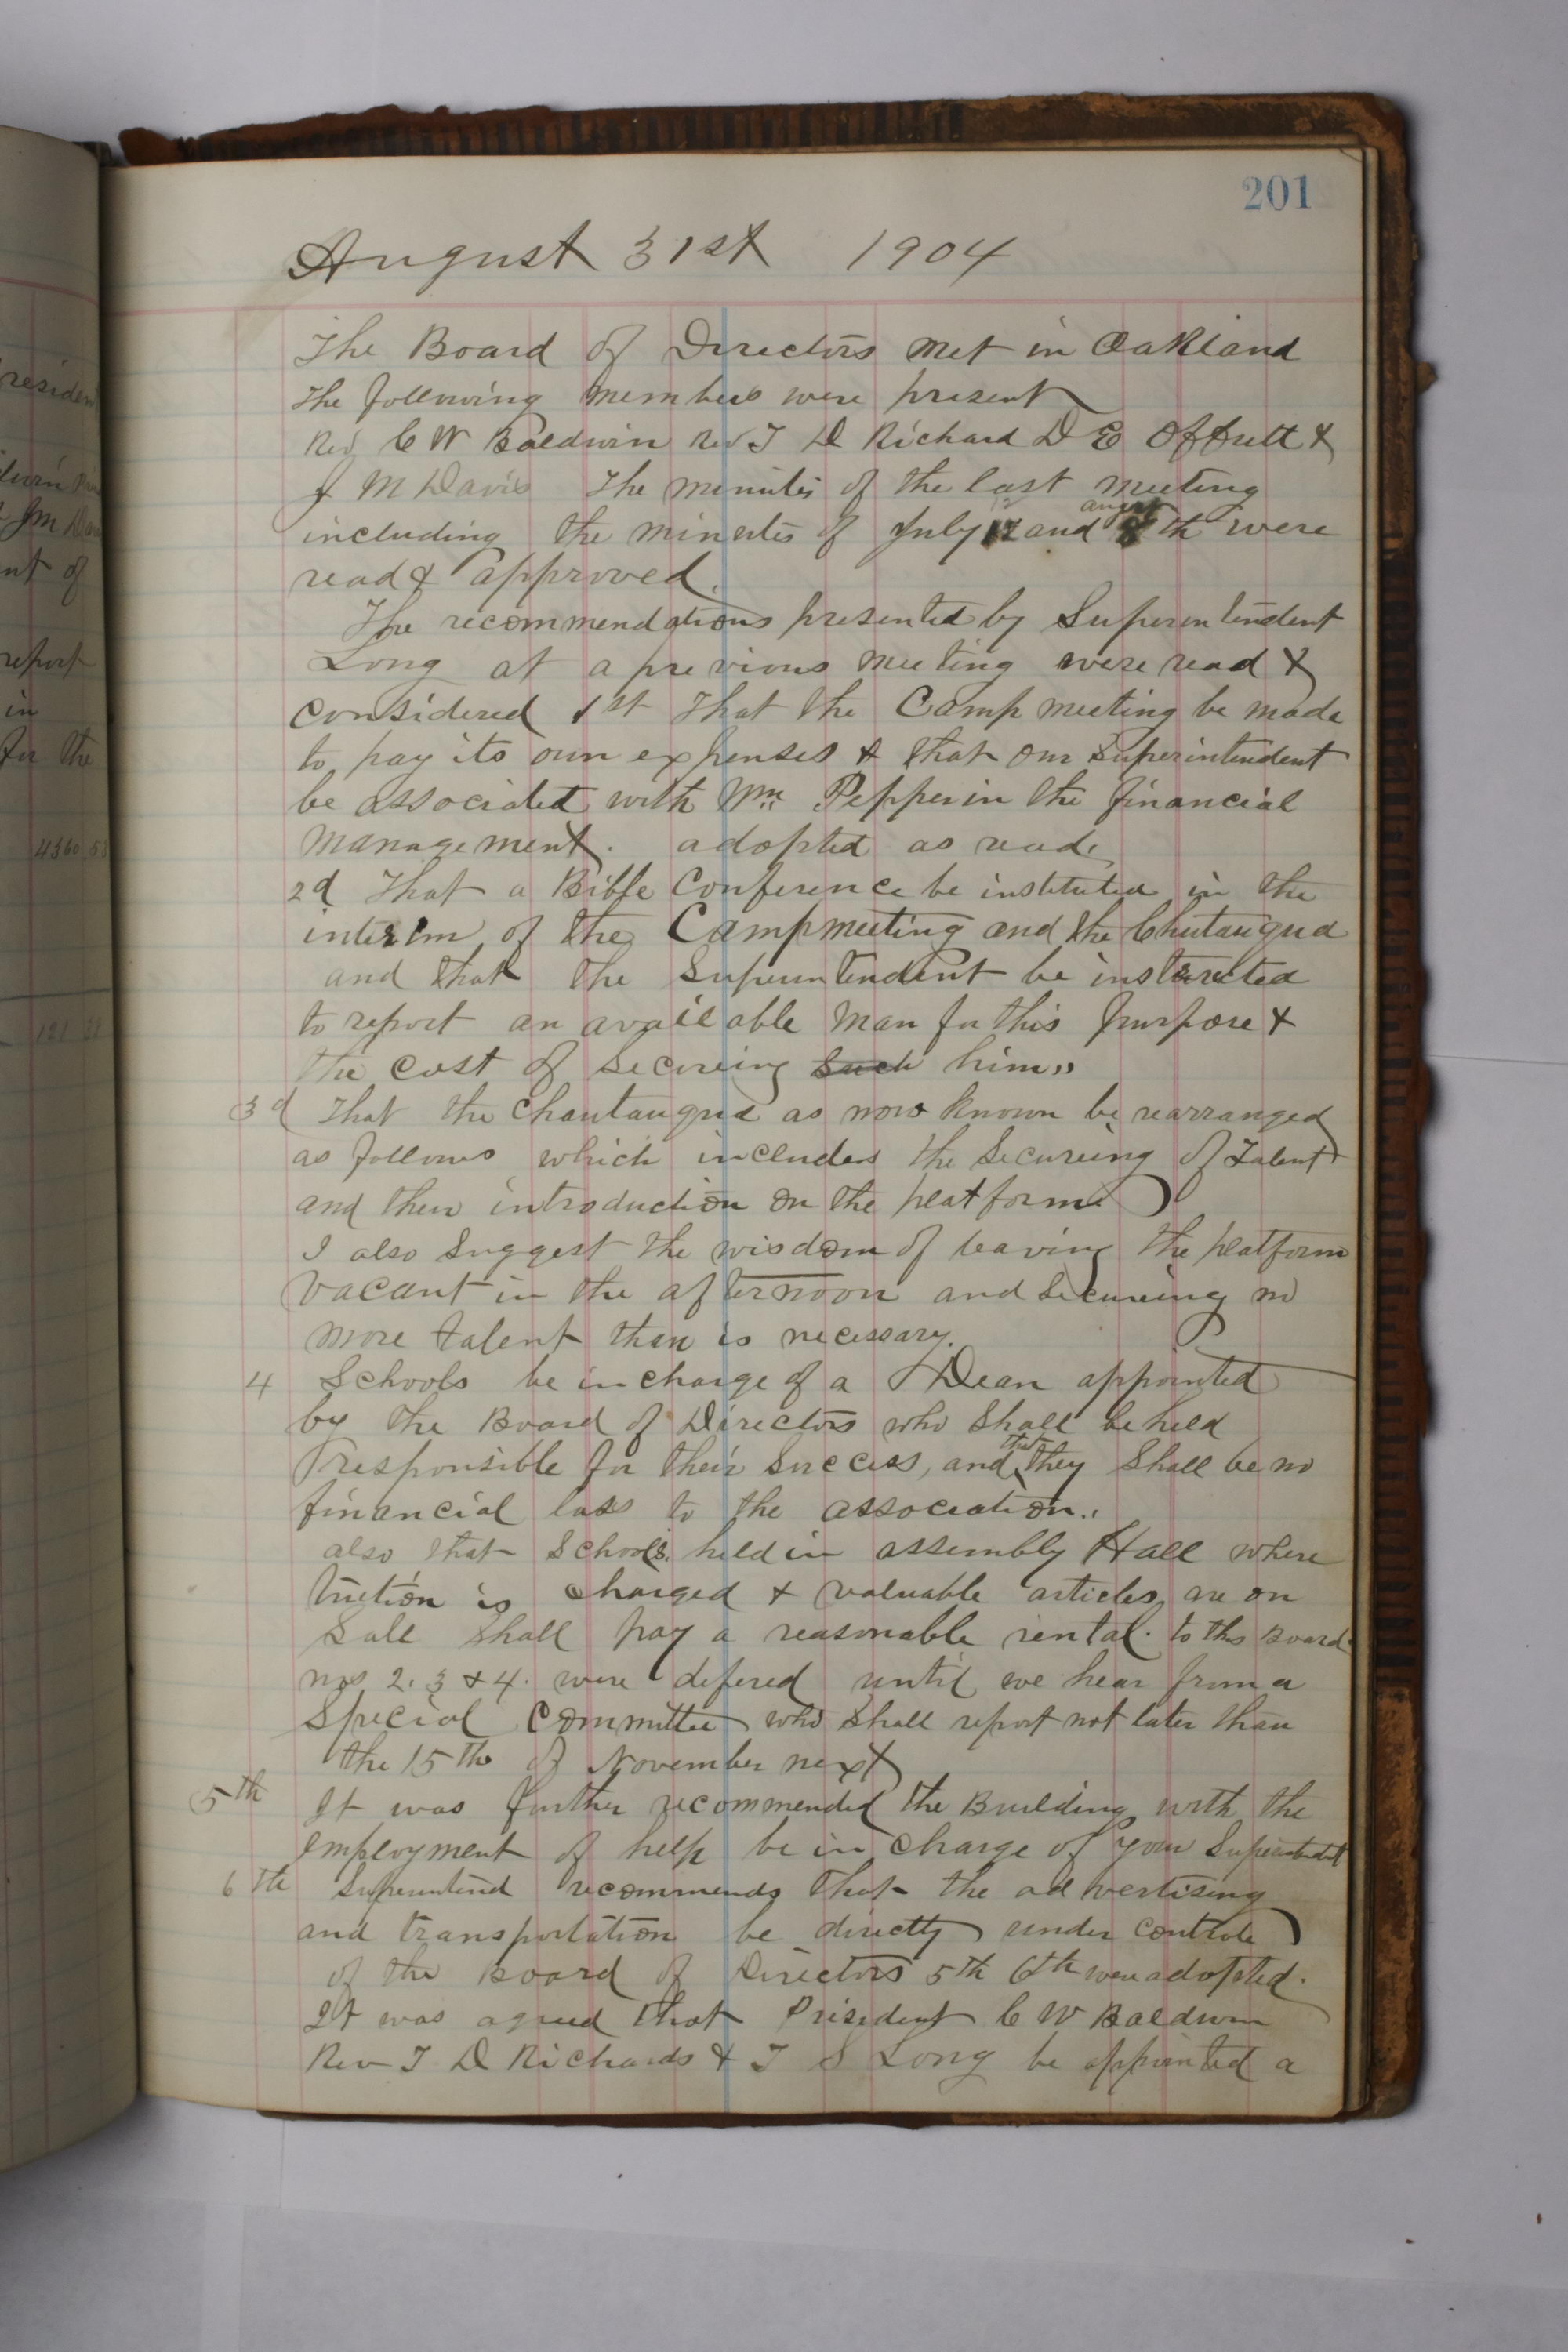 201
August 31st 1904
The Board of Directors met in Oakland
the following members were present
Rev C W Baldwin Rev T D Richard D E Offutt &
J M Davis The minutes of the last meeting
including the minutes of July 12 and august th were
read & approved.
The recommendations presented by Superintendent
Long at a previous meeting were read &
considered 1st That the Camp meeting be made
to pay its own expenses & that our Superintendent
be associated with Wm Pepper in the financial
management. adopted as read
2d That a Bible Conference be instituted in the
interim of the Campmeeting and the Chutauqua
and that the Superintendent be instructed
to report an available man for this purpose &
the cost of Secureing such him"
3d That the Chautauqua as now known be rearranged
as follows which includes the Secureing of Talent
and their introduction on the platform
I also Suggest the wisdom of leaving the platform
vacant in the afternoon and Secureing no
more talent than is necessary.
4 Schools be in charge of a Dean appointed
by the Board of Directors who Shall be held
responsible for their Success, and that they Shall be no
financial loss to the association.
also that Schools held in assembly Hall where
tuition is charged & valuable articles are on
Sale Shall pay a reasonable rental. to this Board
nos 2. 3 & 4. were defered until we hear from a
Special Committee who Shall report not later than
the 15th of November next
5th It was further recommended the Building with the
employment of help be in charge of your Superintendent
6th Superintend recommends that the advertising
and transportation be directly under controle
of the Board of Directors 5th 6th were adopted.
It was agreed that President C W Baldwin
Rev T D Richards & T S Long be appointed a
residen
Jm Dav
nt of
report
in
for the
4360 5
121